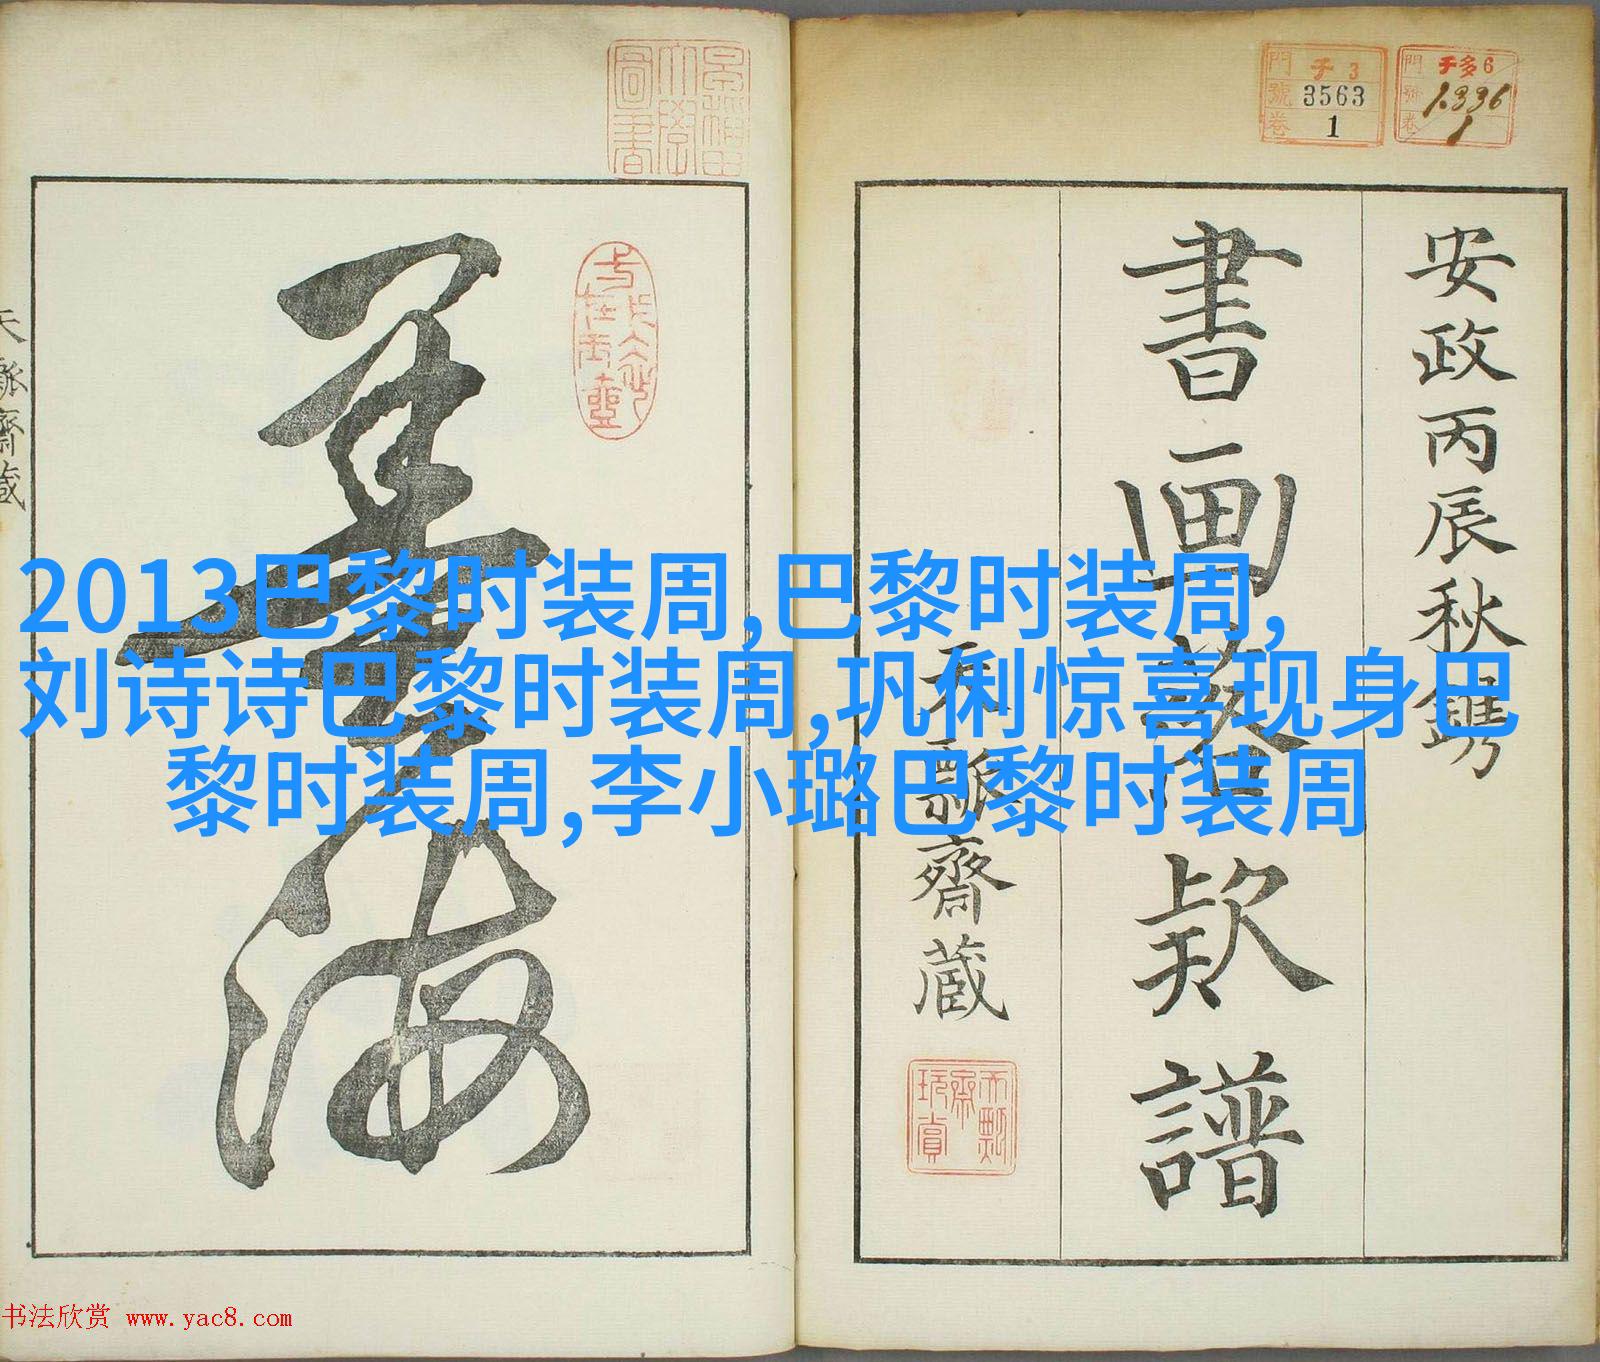 2013巴黎时装周,巴黎时装周,
刘诗诗巴黎时装周,巩俐惊喜现身巴
黎时装周,李小璐巴黎时装周
門 チ 3
號 3563
卷 1
門
號 1336
卷 1
安政丙辰秋鐫
書画落款譜
天瓢齋蔵
天瓢齋玩賞
海
天瓢齋蔵
书法欣赏 www.yac8.com